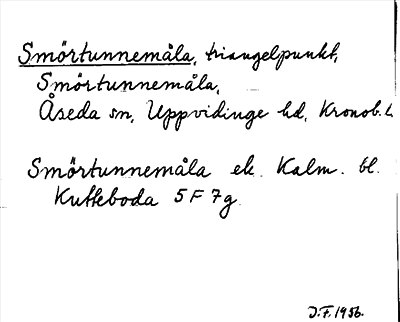 Smörtunnemåla, triangelpunkt,
Smörtunnemåla,
Åseda sn, Uppvidinge hd, Kronob. L
Smörtunnemåla ek. Kalm. bl.
Kutteboda 5 F 7g
J.F. 1956.